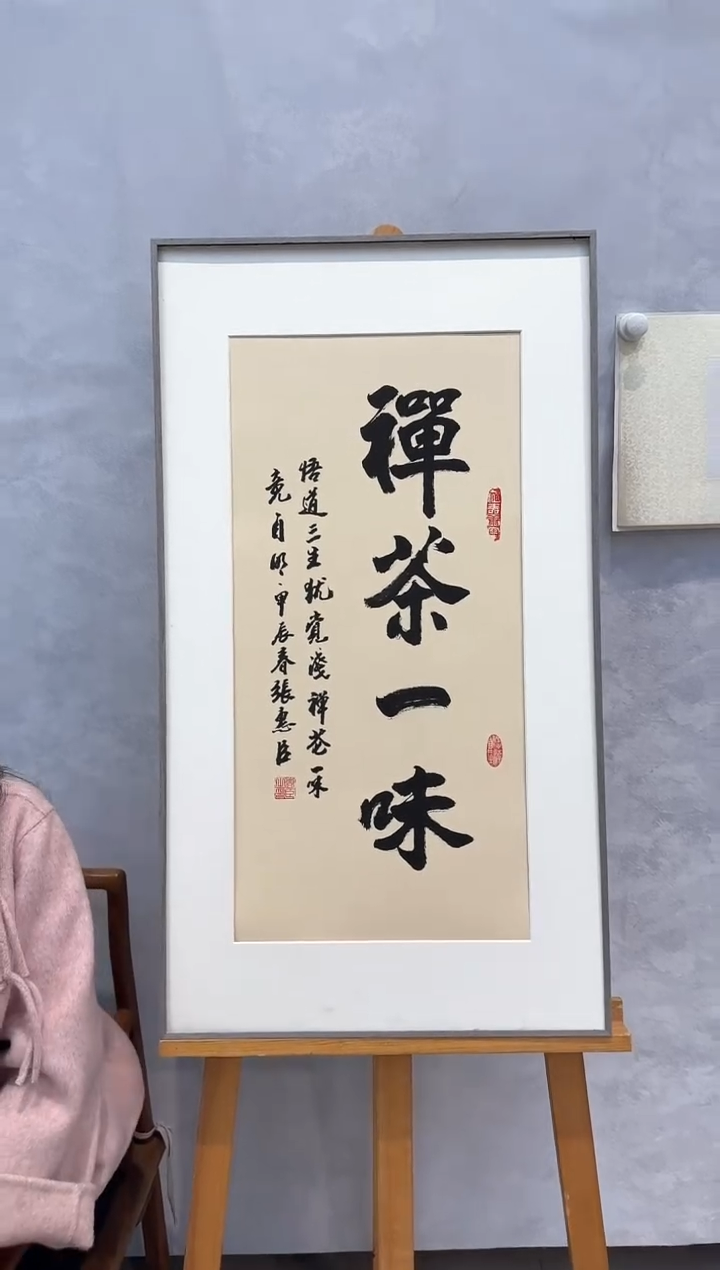 禪茶一味
悟道三生犹覺淺禅茶一味
竟自明甲辰春張惠臣